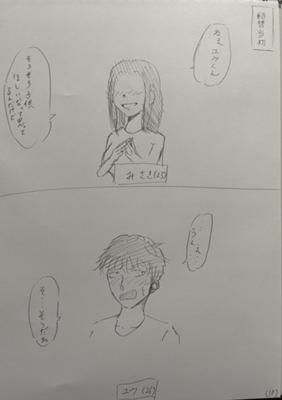 結婚当初
ねえユウくん
そろそろ子供
ほしいなって思って
るんだけど
みさき(25)
そ…そうだね